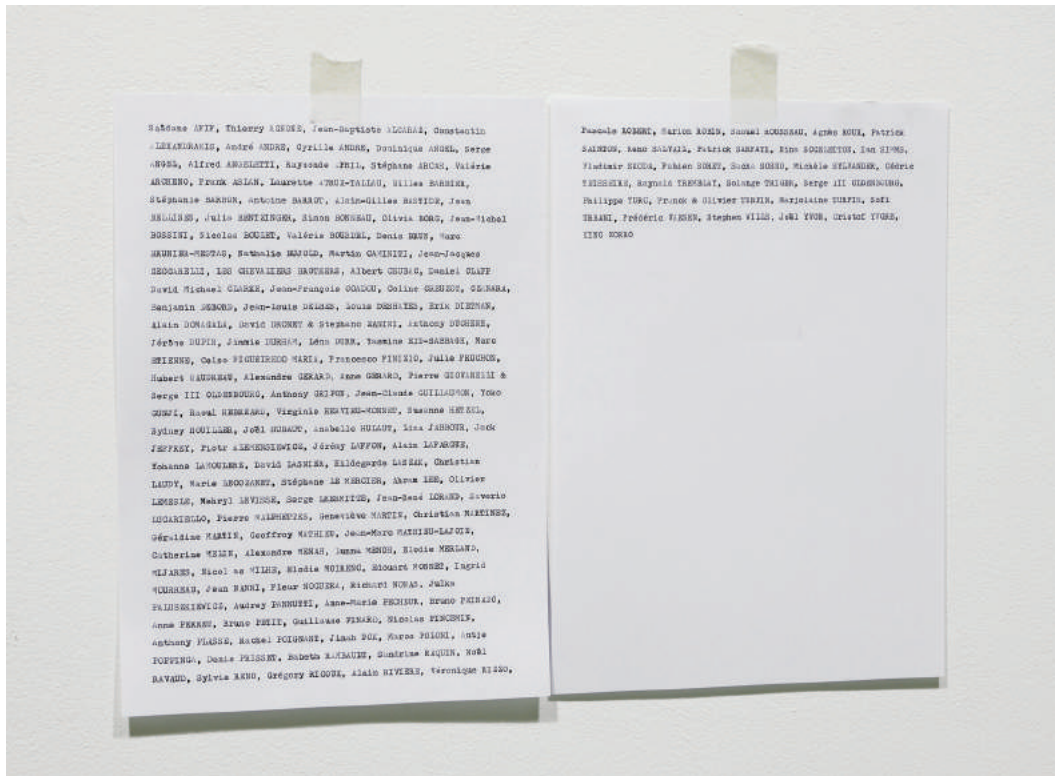 Saâdane AFIF, Thierry AGNONE, Jean-Baptiste ALCARAZ, Constantin
ALEXANDRAKIS, André ANDRE, Cyrille ANDRE, Dominique ANGEL, Serge
ANGEL, Alfred ANGELETTI, Raymonde APRIL, Stéphane ARCAS, Valérie
ARCHENO, Frank ASLAN, Laurette ATRUX-TALLAU, Gilles BARBIER,
Stéphanie BARBON, Antoine BARROT, Alain-Gilles BASTIDE, Jean
BELLINES, Julia BENTZINGER, Simon BONNEAU, Olivia BORG, Jean-Michel
BOSSINI, Nicolas BOULET, Valérie BOURDEL, Denis BRUN, Marc
BRUNIER-MESTAS, Nathalie BUJOLD, Martin CAMINITI, Jean-Jacques
CECCARELLI, LES CHEVALIERS BROTHERS, Albert CHUBAC, Daniel CLAPP
David Michael CLARKE, Jean-François COADOU, Coline CREUZOT,
Benjamin DEBORD, Jean-Louis DELBES, Louis DESHAYES, Erik DIETMAN,
Alain DOMAGALA, David DRONET & Stephane ZANINI, Anthony DUCHENE,
Jérôme DUPIN, Jimmie DURHAM, Léna DURR, Yasmine EID-SABBAGH, Marc
ETIENNE, Celso FIGUEIREDO MARIA, Francesco FINIZIO, Julie FRUCHON,
Hubert GAUDREAU, Alexandre GERARD, Anne GERARD, Pierre GIOVANELLI &
Serge III OLDENBOURG, Anthony GRIPON, Jean-Claude GUILLAUMON, Yoko
GUNJI, Raoul HEBREARD, Virginie HERVIEU-MONNET, Susanne HETZEL,
Sydney HOUILLER, Joël HUBAUT, Anabelle HULAUT, Lina JABBOUR, Jack
JEFFREY, Piotr KLEMENSIEWICZ, Jérémy LAFFON, Alain LAFARGUE,
Yohanne LAMOULERE, David LASNIER, Hildegarde LASZAK, Christian
LAUDY, Marie LECOZANET, Stéphane LE MERCIER, Ahram LEE, Olivier
LEMESLE, Mehryl LEVISSE, Serge LHERMITTE, Jean-René LORAND, Saverio
LUCARIELLO, Pierre MALPHETTES, Geneviève MARTIN, Christian MARTINEZ,
Géraldine MARTIN, Geoffroy MATHIEU, Jean-Marc MATHIEU-LAJOIE,
Catherine MELIN, Alexandre MENAH, MENGH, Elodie MERLAND,
MIJARES, Nicol as MILHE, Elodie MOIRENC, Edouard MONNET, Ingrid
MOURREAU, Jean NANNI, Fleur NOGUERA, Richard NONAS, Julka
PALUSZKIEWICZ, Audrey PANNUTTI, Anne-Marie PECHEUR, Bruno PEINADO,
Anne PERRET, Bruno PETIT, Guillaume PINARD, Nicolas PINCEMIN,
Anthony PLASSE, Rachel POIGNANT, Jinah POK, Marco POLONI, Antje
POPPINGA, Denis PRISSET, Babeth RAMBAULT, Sandrine RAQUIN, Noël
RAVAUD, Sylvie RENO, Grégory RICOUX, Alain RIVIERE, Véronique RIZZO,
Pascale ROBERT, Marion ROBIN, Samuel ROUSSEAU, Agnès ROUX, Patrick
SAINTON, Reno SALVAIL, Patrick SARFATI, Rino SOCKLETON, Ian SIMMS,
Vladimir SKODA, Fabien SORET, Sacha SOSNO, Michèle SYLVANDER, Cédric
TEISSEIRE, Reynald TREMBLAY, Solange TRIGER, Serge III OLDENBOURG,
Philippe TURC, Franck & Olivier TURPIN, Marjolaine TURPIN, Sofi
URBANI, Frédéric VAESEN, Stephen WILLS, Joël YVON, Cristof YVORE,
XING KORRO